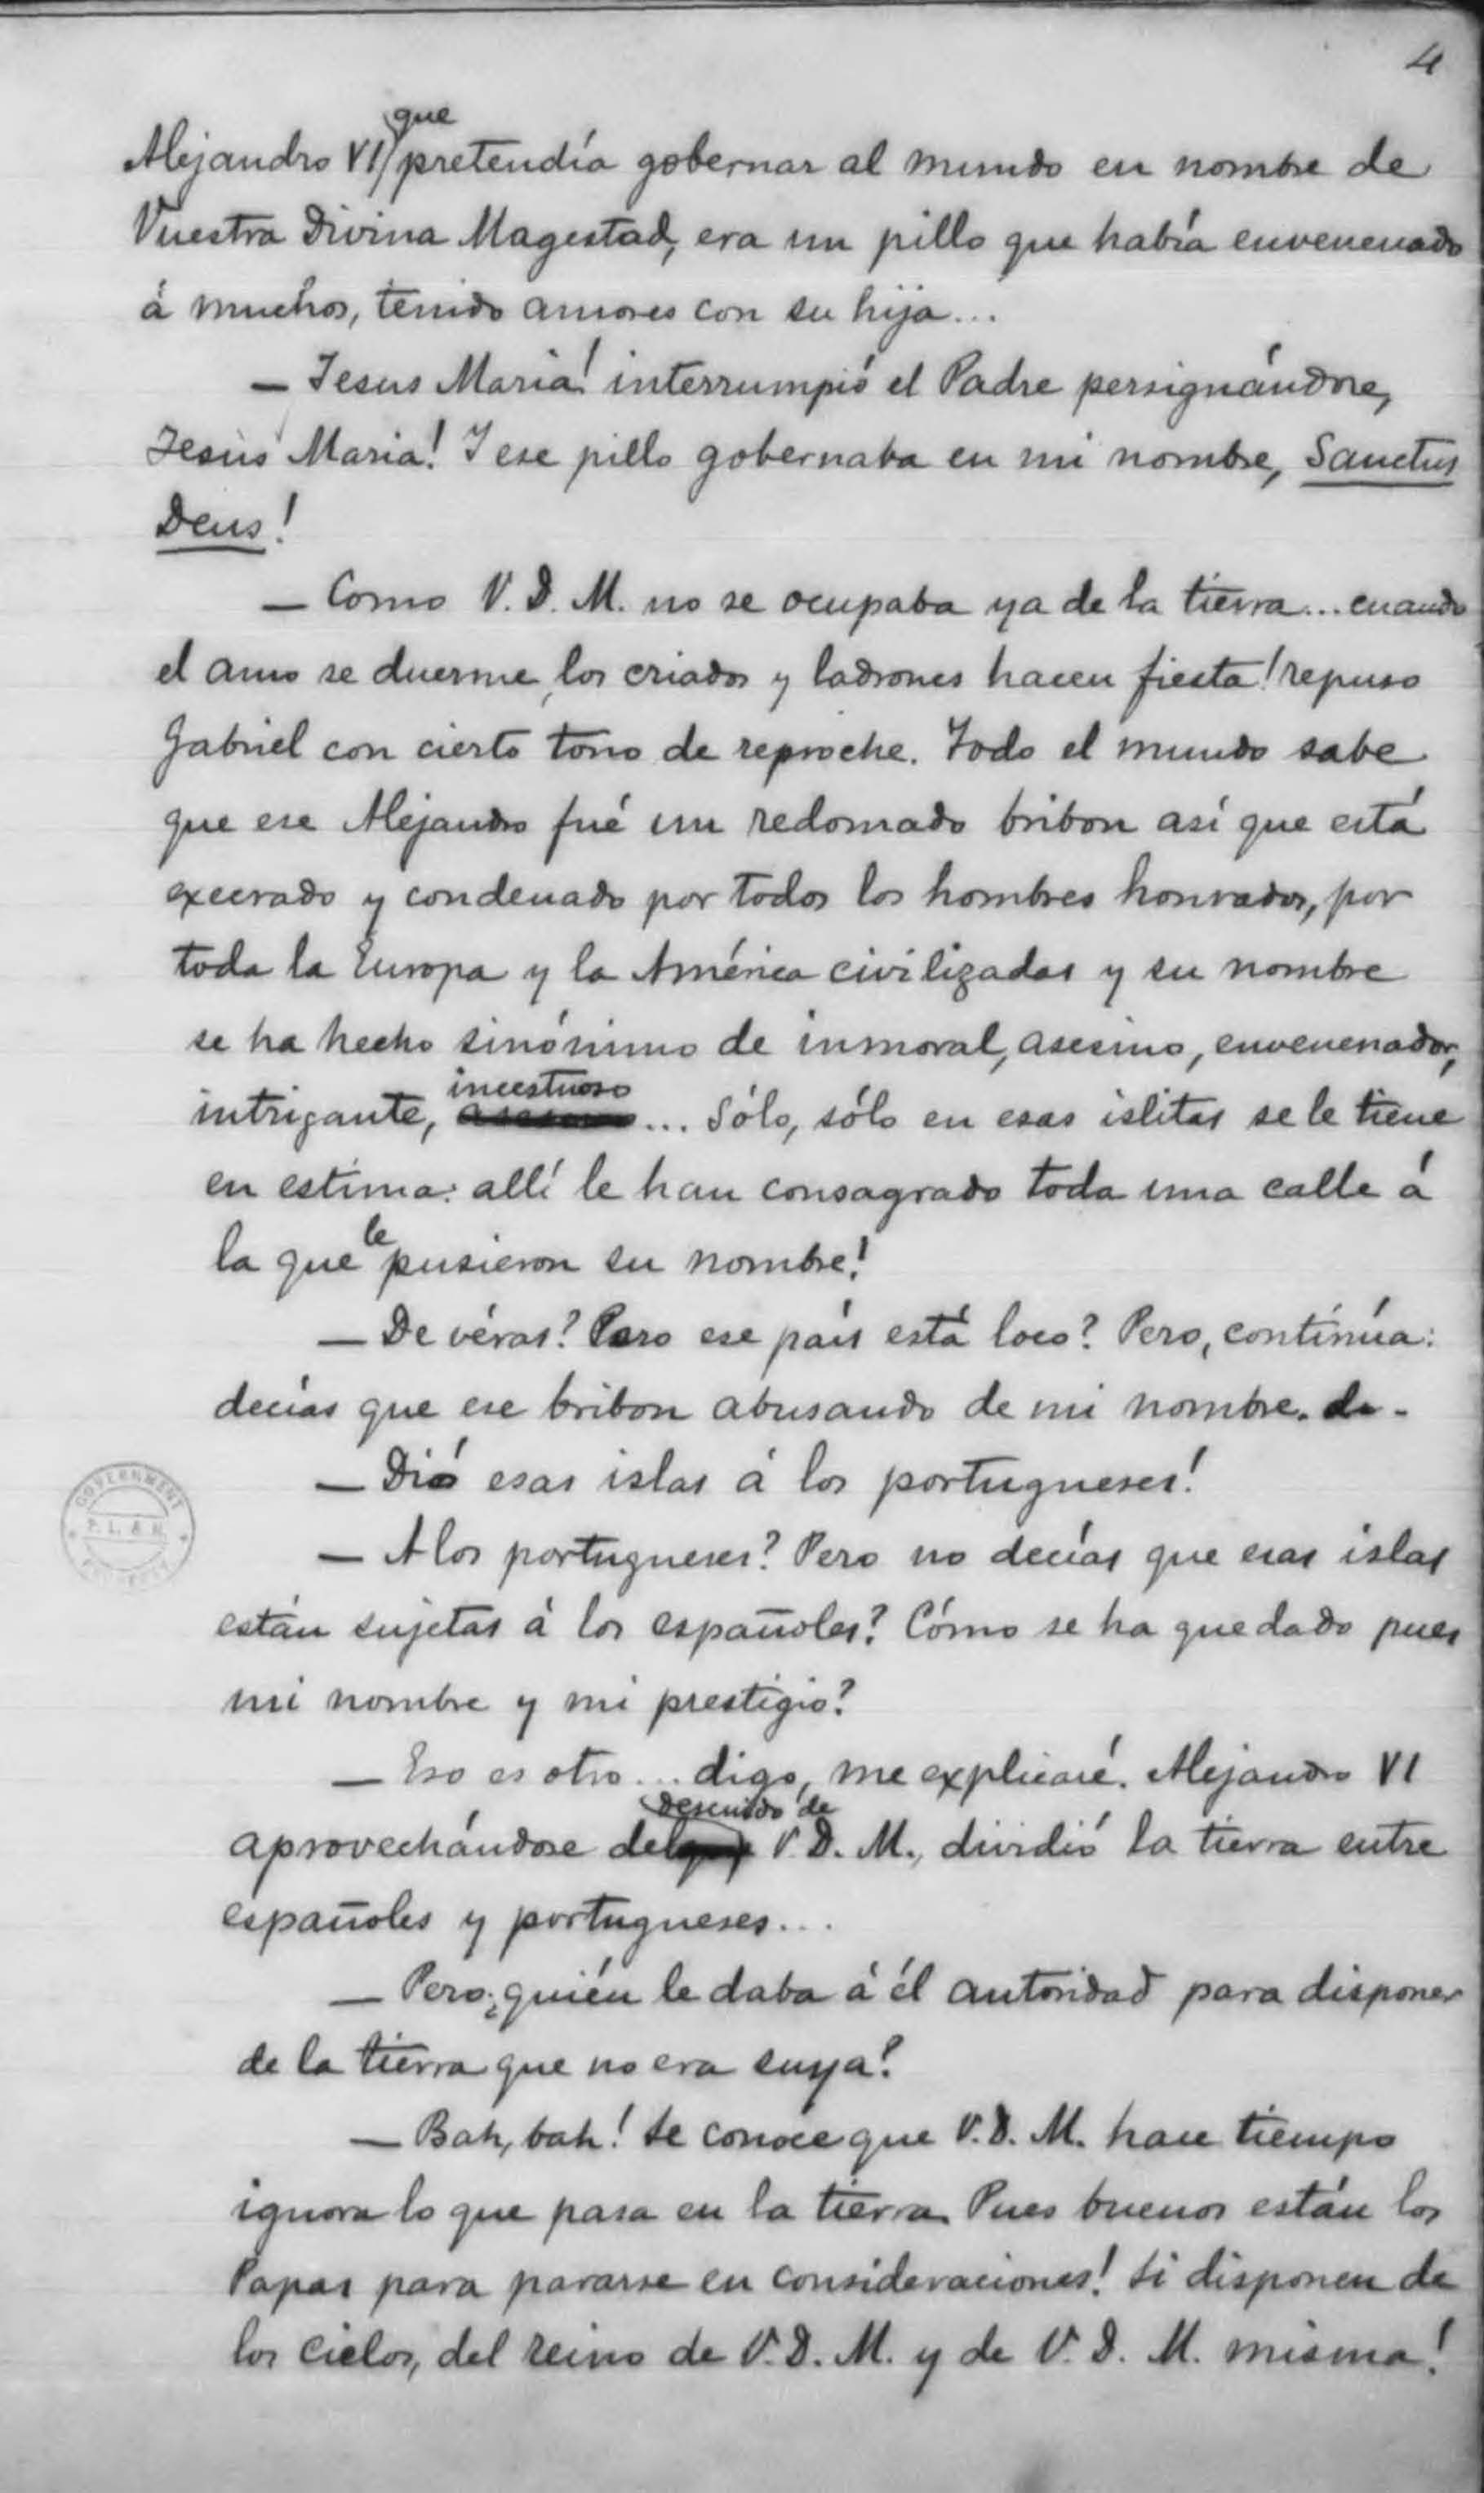 4
Alejandro VI que pretendía gobernar al mundo en nombre de
Vuestra Divina Magestad, era un pillo que había envenenado
á muchos, tenido amores con su hija...
— Jesus Maria! interrumpió el Padre persignándose,
Jesús Maria! I ese pillo gobernaba en mi nombre, Sanctus
Deus!
— Como V. D. M. no se ocupaba ya de la tierra... cuando
el amo se duerme, los criados y ladrones hacen fiesta! repuso
Gabriel con cierto tono de reproche. Todo el mundo sabe
que ese Alejandro fué un redomado bribon así que está
execrado y condenado por todos los hombres honrados, por
toda la Europa y la América civilizadas y su nombre
se ha hecho sinónimo de inmoral, asesino, envenenador,
intrigante, incestuoso... Sólo, sólo en esas islitas se le tiene
en estima: allí le han consagrado toda una calle á
la que le pusieron su nombre!
— De véras? Pero ese país está loco? Pero, continúa:
decías que ese bribon abusando de mi nombre. de-
— Dió esas islas á los portugueses!
— A los portugueses? Pero no decías que esas islas
están sujetas á los españoles? Cómo se ha quedado pues
mi nombre y mi prestigio?
— Eso es otro... digo, me explicaré. Alejandro VI
aprovechándose del descuido de V. D. M., dividió la tierra entre
españoles y portugueses...
— Pero ¿quién le daba á él autoridad para disponer
de la tierra que no era suya?
— Bah, bah! Se conoce que V. D. M. hace tiempo
ignora lo que pasa en la tierra. Pues buenos están los
Papas para pararse en consideraciones! Si disponen de
los cielos, del reino de V. D. M. y de V. D. M. misma!
GOVERNMENT
P. L. & M.